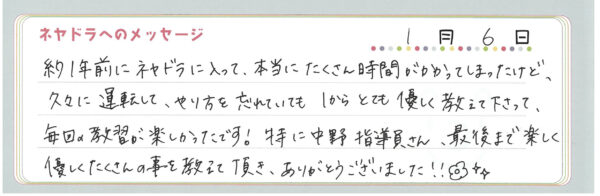 ネヤドラへのメッセージ
1月6日
約1年前にネヤドラに入って、本当にたくさん時間がかかってしまったけど、
久々に運転して、やり方を忘れていても1からとても優しく教えて下さって、
毎回の教習が楽しかったです!特に中野指導員さん、最後まで楽しく
優しくたくさんの事を教えて頂き、ありがとうございました!!